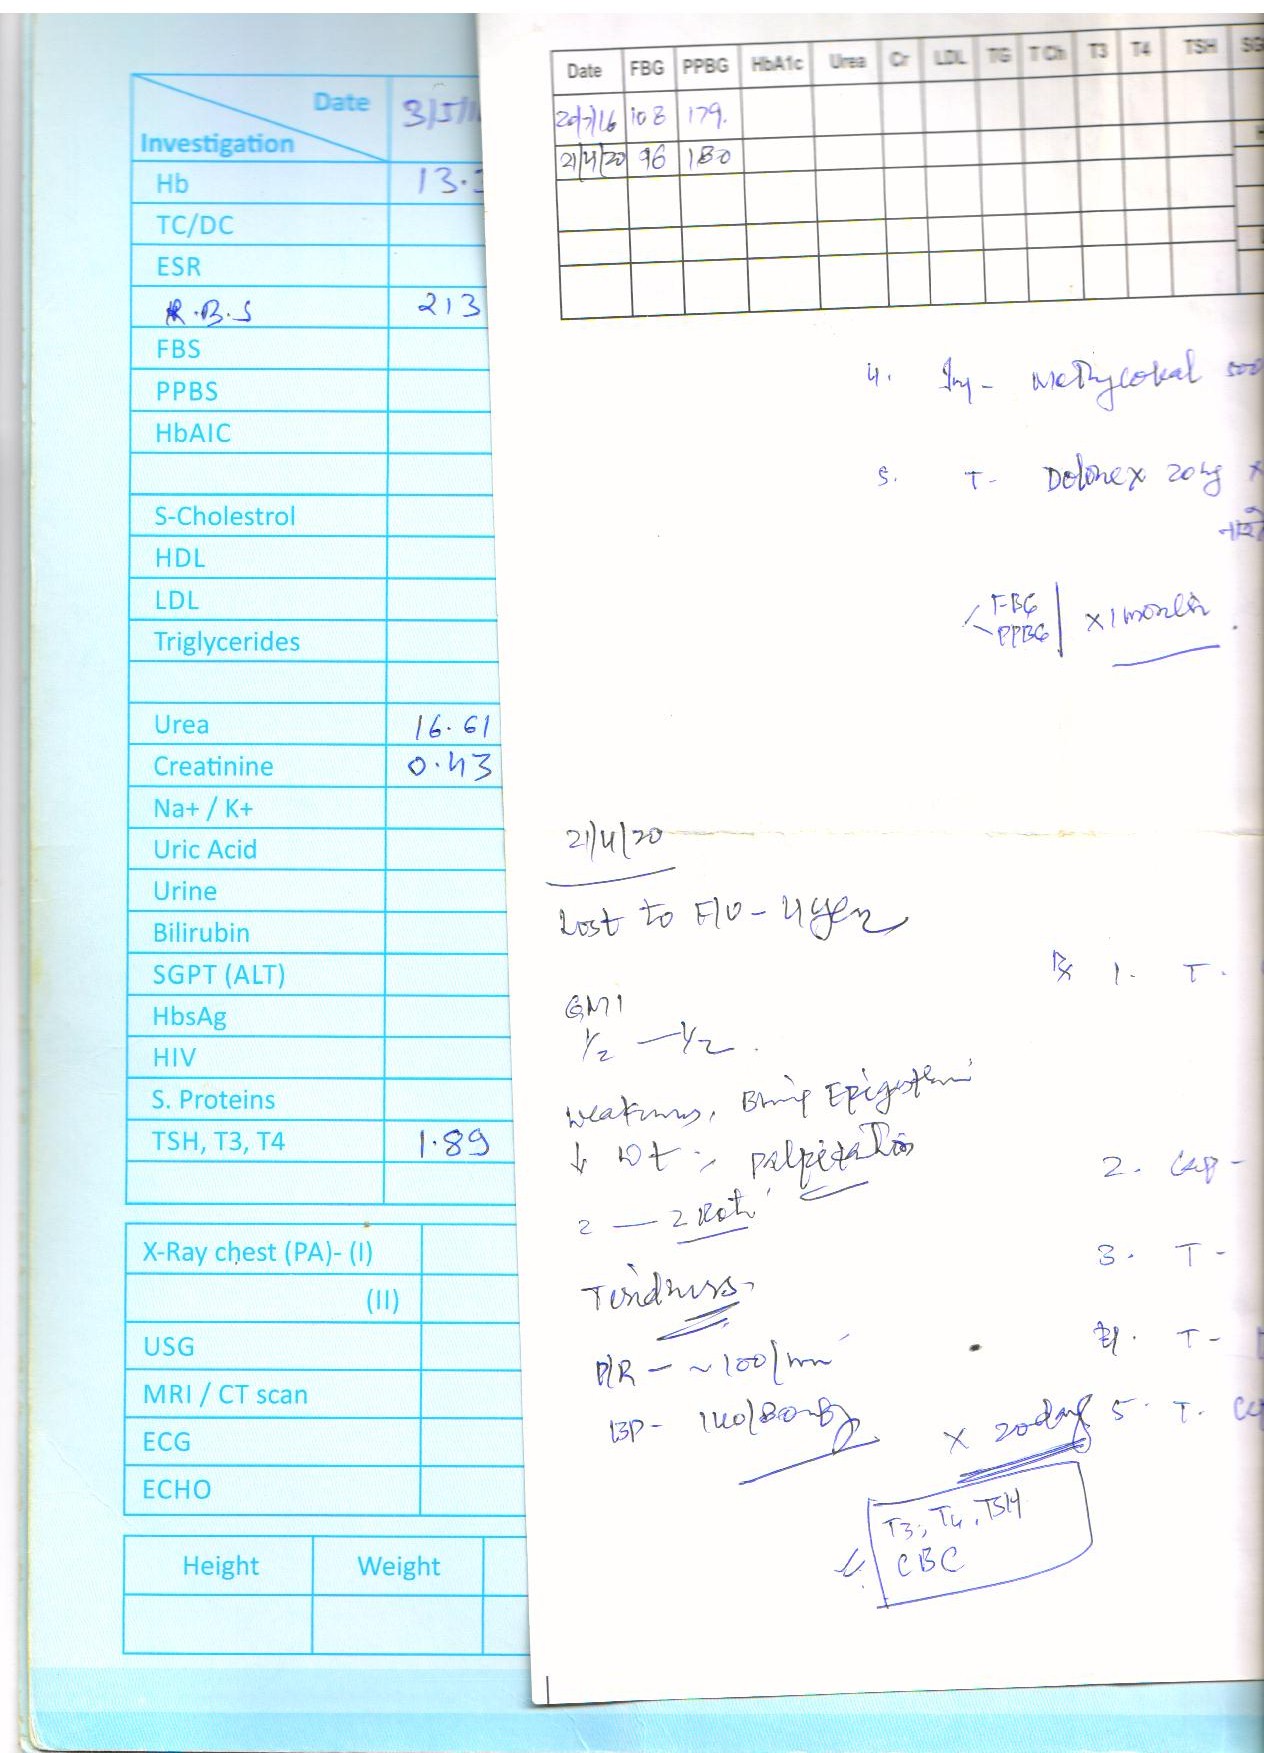 Date
Investigation
3/5/1
Hb 13.
TC/DC
ESR
R.B.S 213
FBS
PPBS
HbAIC
S-Cholestrol
HDL
LDL
Triglycerides
Urea 16.61
Creatinine 0.43
Na+ / K+
Uric Acid
Urine
Bilirubin
SGPT (ALT)
HbsAg
HIV
S. Proteins
TSH, T3, T4 1.89
X-Ray chest (PA)- (I)
(II)
USG
MRI / CT scan
ECG
ECHO
Height Weight
Date FBG PPBG HbA1c Urea Cr LDL TG T Ch T3 T4 TSH SG
20/7/16 108 179.
21/4/20 96 180
4. Inj- Methycobal 500
5. T- Dolonex 20mg x
FBG
PPBG x 1 month.
21/4/20
Lost to F/U - 4 year
GM1
1/2 — 1/2.
Weakness, Epigastric
↓ wt, palpitation
2 — 2 Roti
Tiredness
P/R - ~100/min
BP- 140/80
Rx 1. T.
2. Cap-
3. T-
4. T-
x 20 days 5. T.
T3, T4, TSH
CBC